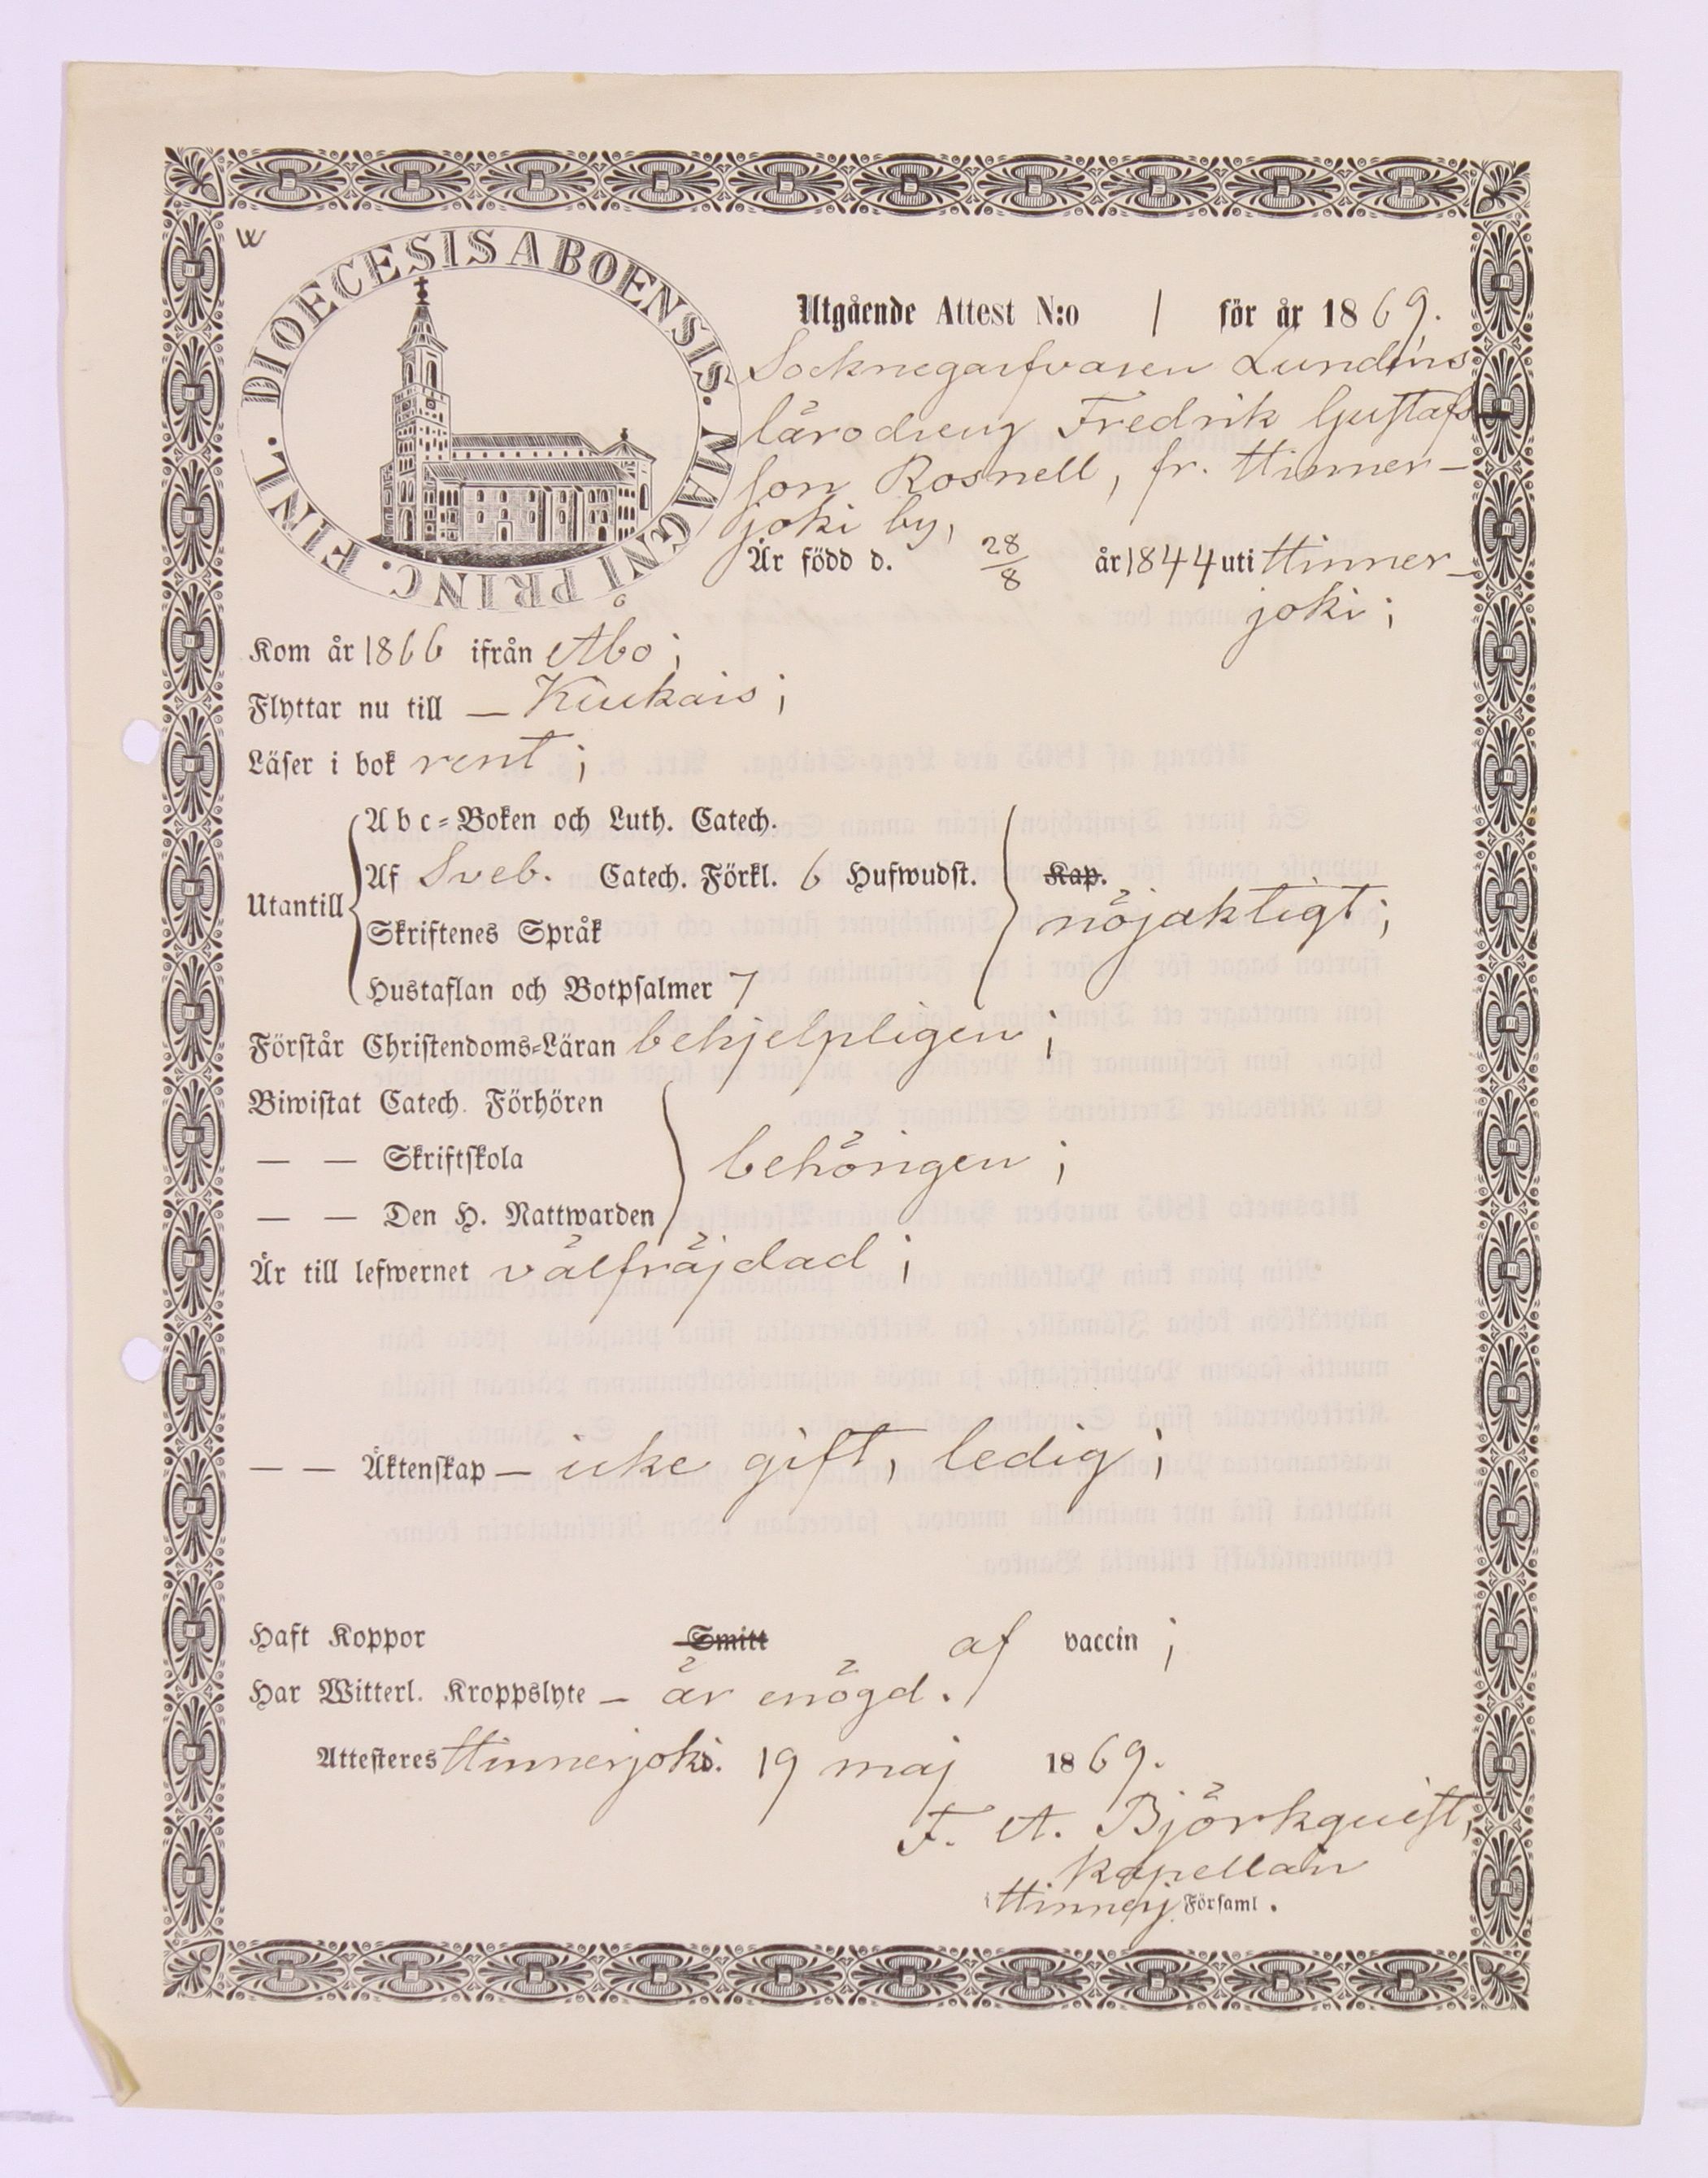 W
DIOECESIS ABOENSIS. MAGNI PRINC. FINL.
Utgående Attest N:o 1 för år 1869.
Socknegarfvaren Lundéns
lärodreng Fredrik Gustafs
son Rosnell, fr. Hinner-
joki by,
Är född d. 28/8 år 1844 uti Hinner-
joki;
Kom år 1866 ifrån Åbo;
Flyttar nu till — Kiukais;
Läser i bok rent;
Utantill
Abc-Boken och Luth. Catech.
Af Sveb. Catech. Förkl. 6 Hufwudst. Kap.
Skriftenes Språk
nöjaktigt;
Hustaflan och Botpsalmer 7
Förstår Christendoms-Läran behjelpligen;
Biwistat Catech. Förhören
— — Skriftskola
behörigen;
— — Den H. Nattwarden
Är till lefwernet välfräjdad;
— — Äktenskap — icke gift, ledig;
Haft Koppor Smitt af vaccin;
Har Witterl. Kroppslyte — är enögd.
Attesteres Hinnerjoki d. 19 maj 1869.
F. A. Björkquist,
Kapellan
i Hinnerj. Församl.